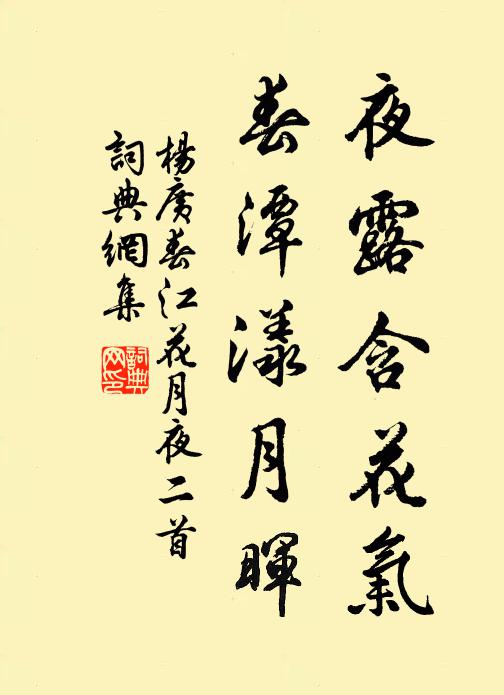 夜露含花氣
春潭漾月暉
楊廣春江花月夜二首
詞典網集
詞典網印